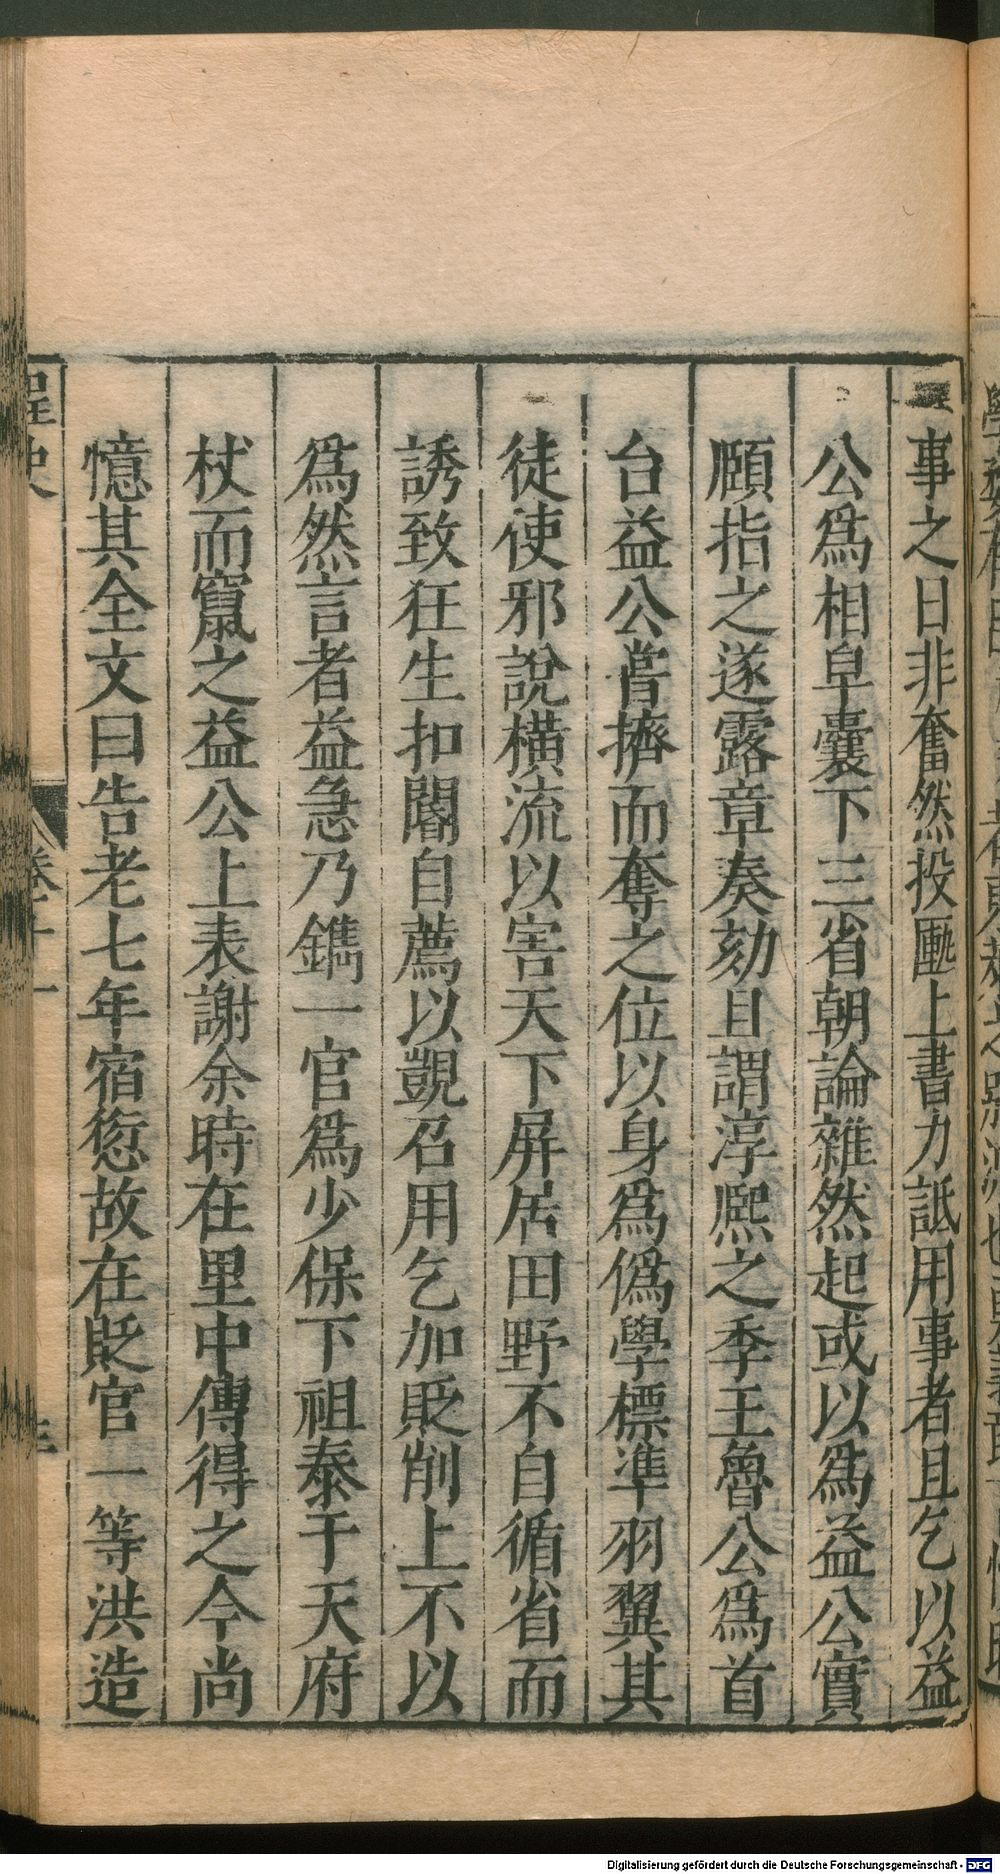 事之日非奮然投匭上書力詆用事者且乞以益
公爲相皁囊下三省朝論雜然起或以爲益公實
頤指之遂露章奏劾且謂淳熙之季王魯公爲首
台益公嘗擠而奪之位以身爲僞學標準羽翼其
徒使邪說橫流以害天下屏居田野不自循省而
誘致狂生扣閽自薦以覬召用乞加貶削上不以
爲然言者益急乃鐫一官爲少保下祖泰于天府
杖而竄之益公上表謝余時在里中傳得之今尚
憶其全文曰告老七年宿愆故在貶官一等洪造
桯史
卷十一
Digitalisierung gefördert durch die Deutsche Forschungsgemeinschaft - DFG